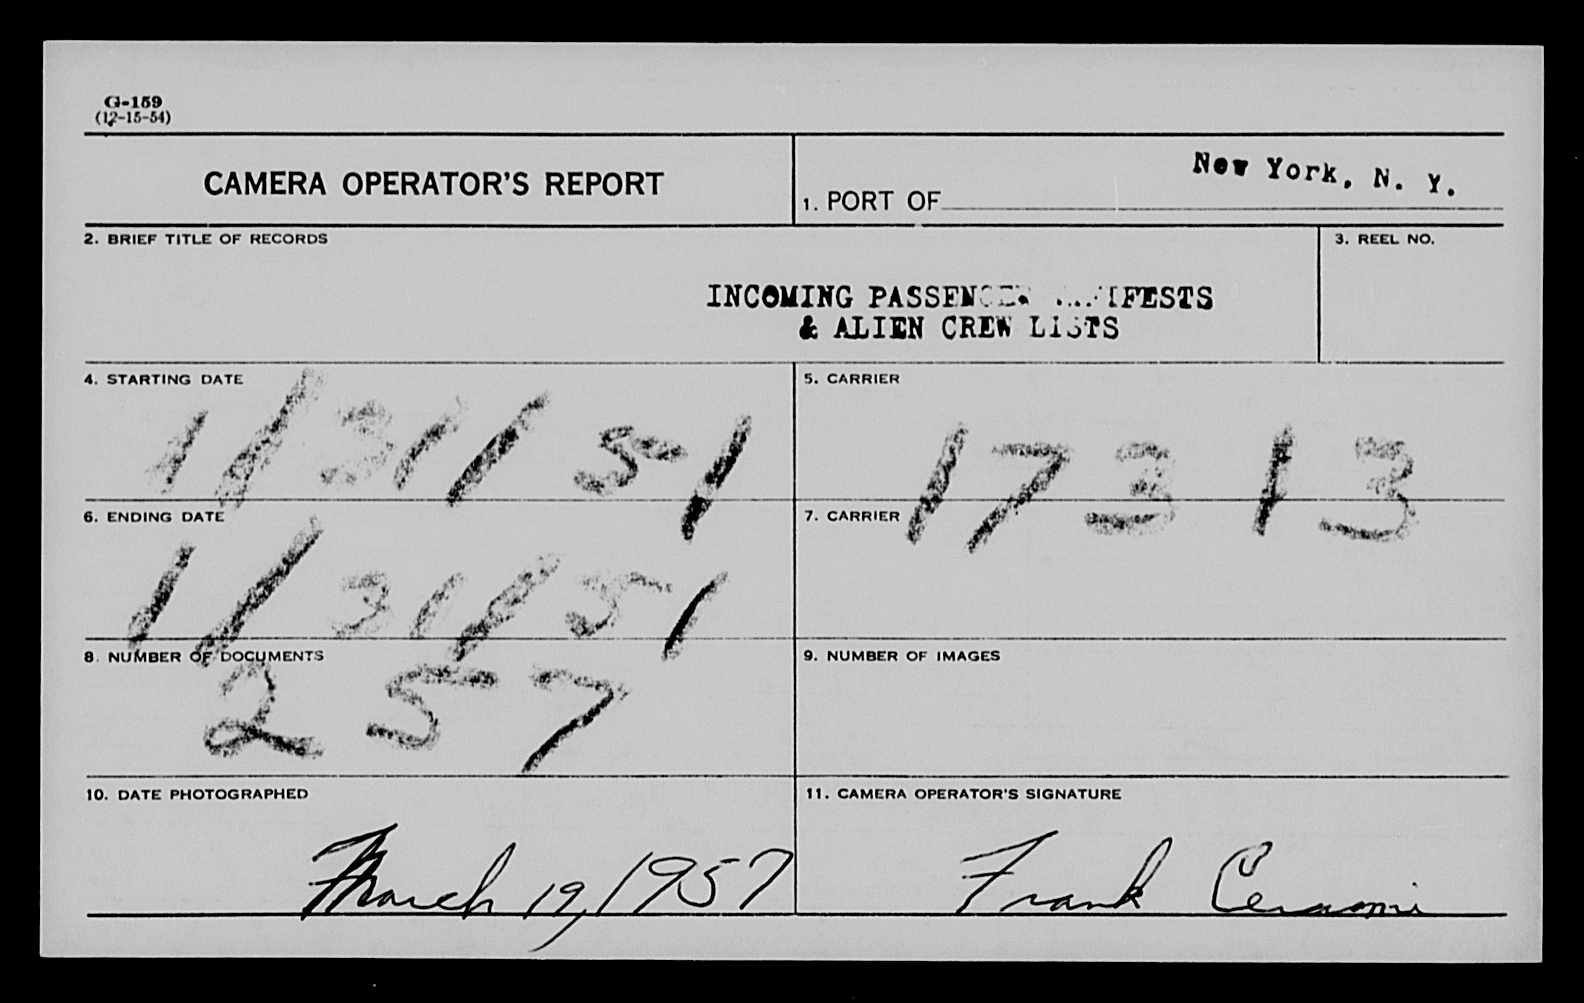 G-159
(12-15-54)
CAMERA OPERATOR'S REPORT
1. PORT OF New York, N. Y.
2. BRIEF TITLE OF RECORDS
INCOMING PASSENGER MANIFESTS
& ALIEN CREW LISTS
3. REEL NO.
4. STARTING DATE
1/31/51
5. CARRIER
17313
6. ENDING DATE
1/31/51
7. CARRIER
8. NUMBER OF DOCUMENTS
257
9. NUMBER OF IMAGES
10. DATE PHOTOGRAPHED
March 19, 1957
11. CAMERA OPERATOR'S SIGNATURE
Frank Cerami